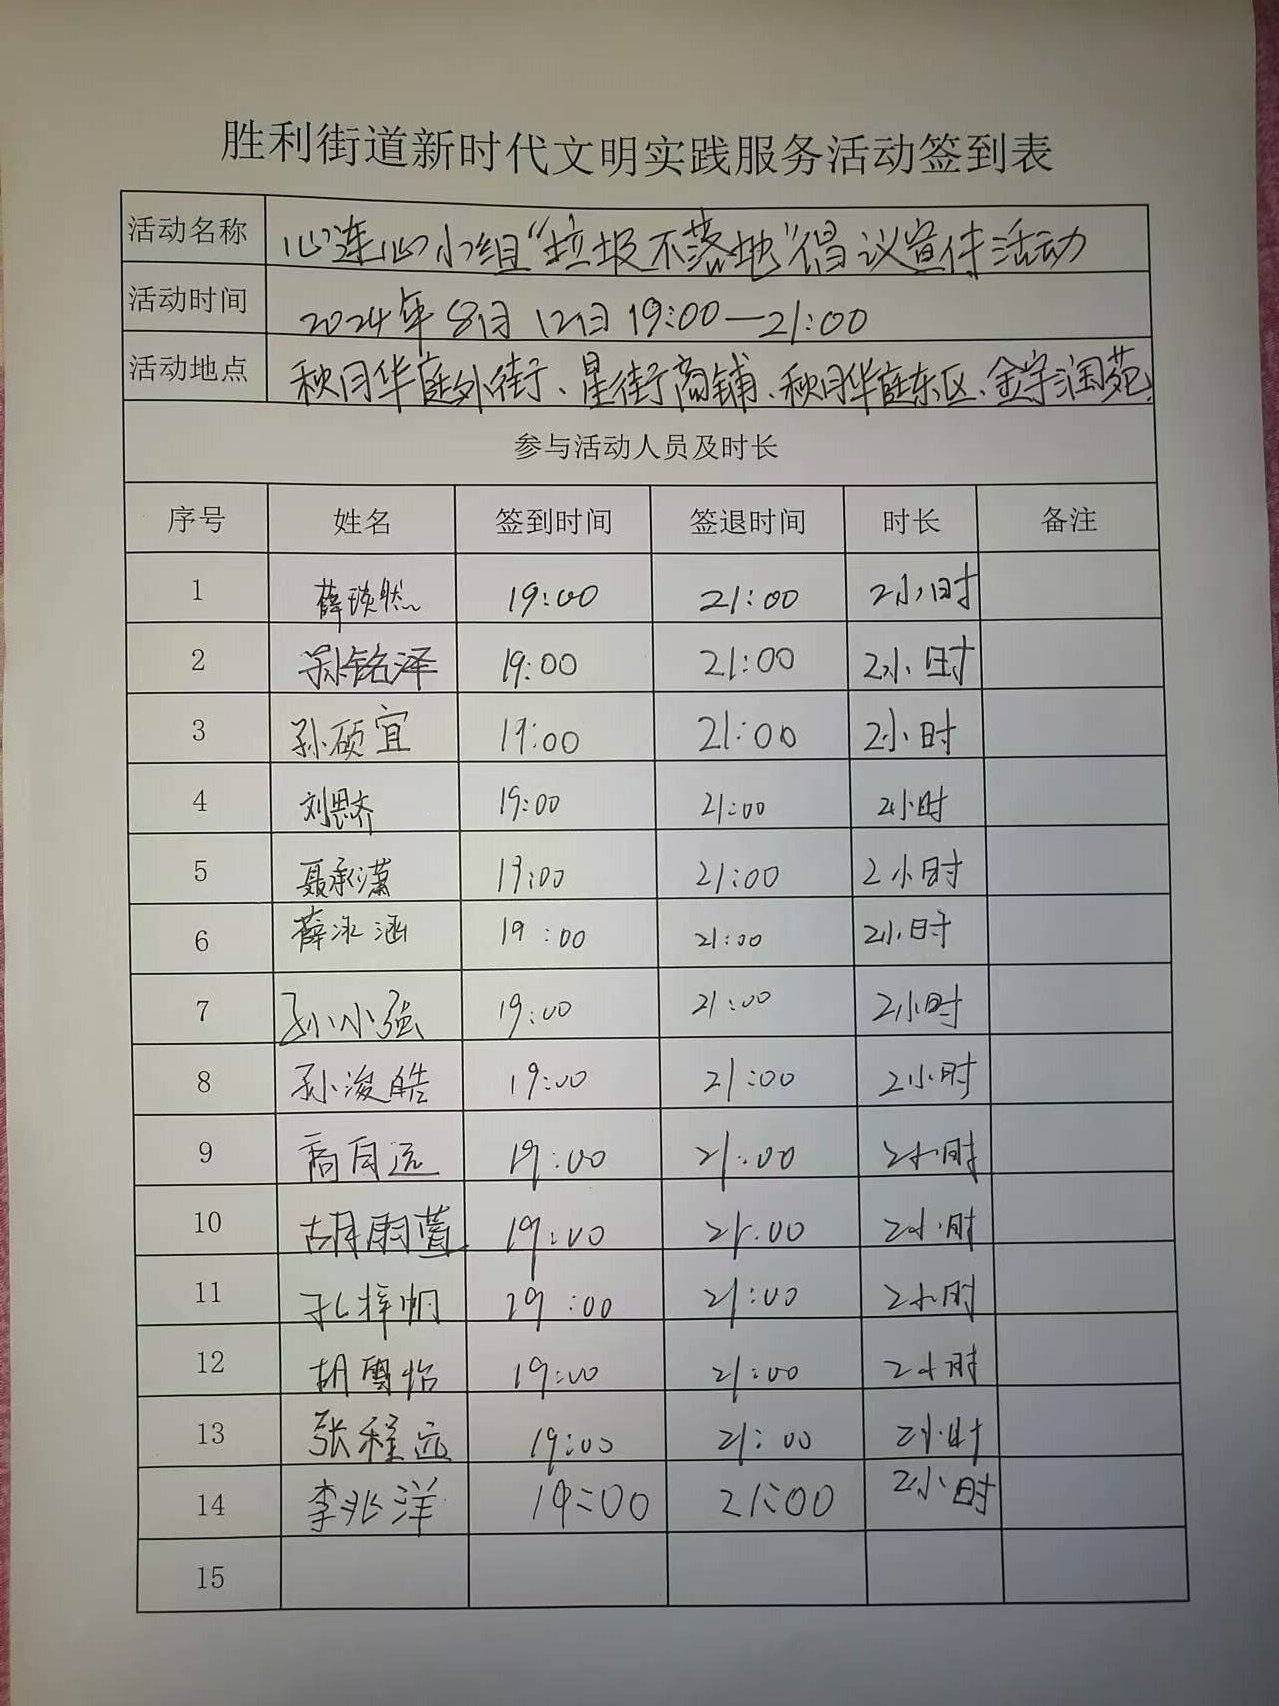 胜利街道新时代文明实践服务活动签到表
活动名称 心连心小组“垃圾不落地”倡议宣传活动
活动时间 2024年8月12日 19:00—21:00
活动地点 秋月华庭外街、星街商铺、秋月华庭东区、金宇润苑
参与活动人员及时长
序号 姓名 签到时间 签退时间 时长 备注
1 薛琰然 19:00 21:00 2小时
2 孙铭泽 19:00 21:00 2小时
3 孙硕宜 19:00 21:00 2小时
4 19:00 21:00 2小时
5 聂承潇 19:00 21:00 2小时
6 薛泳涵 19:00 21:00 2小时
7 孙小强 19:00 21:00 2小时
8 孙浚皓 19:00 21:00 2小时
9 19:00 21:00 2小时
10 19:00 21:00 2小时
11 孔梓帆 19:00 21:00 2小时
12 胡雪怡 19:00 21:00 2小时
13 张程远 19:00 21:00 2小时
14 李兆洋 19:00 21:00 2小时
15